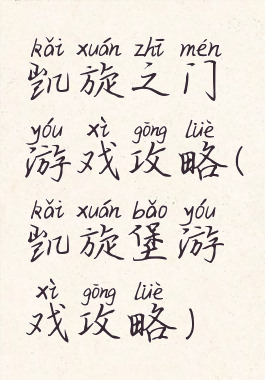 kǎi xuán zhī mén
凯旋之门
yóu xì gōng lüè
游戏攻略(
kǎi xuán bǎo yóu
凯旋堡游
xì gōng lüè
戏攻略)